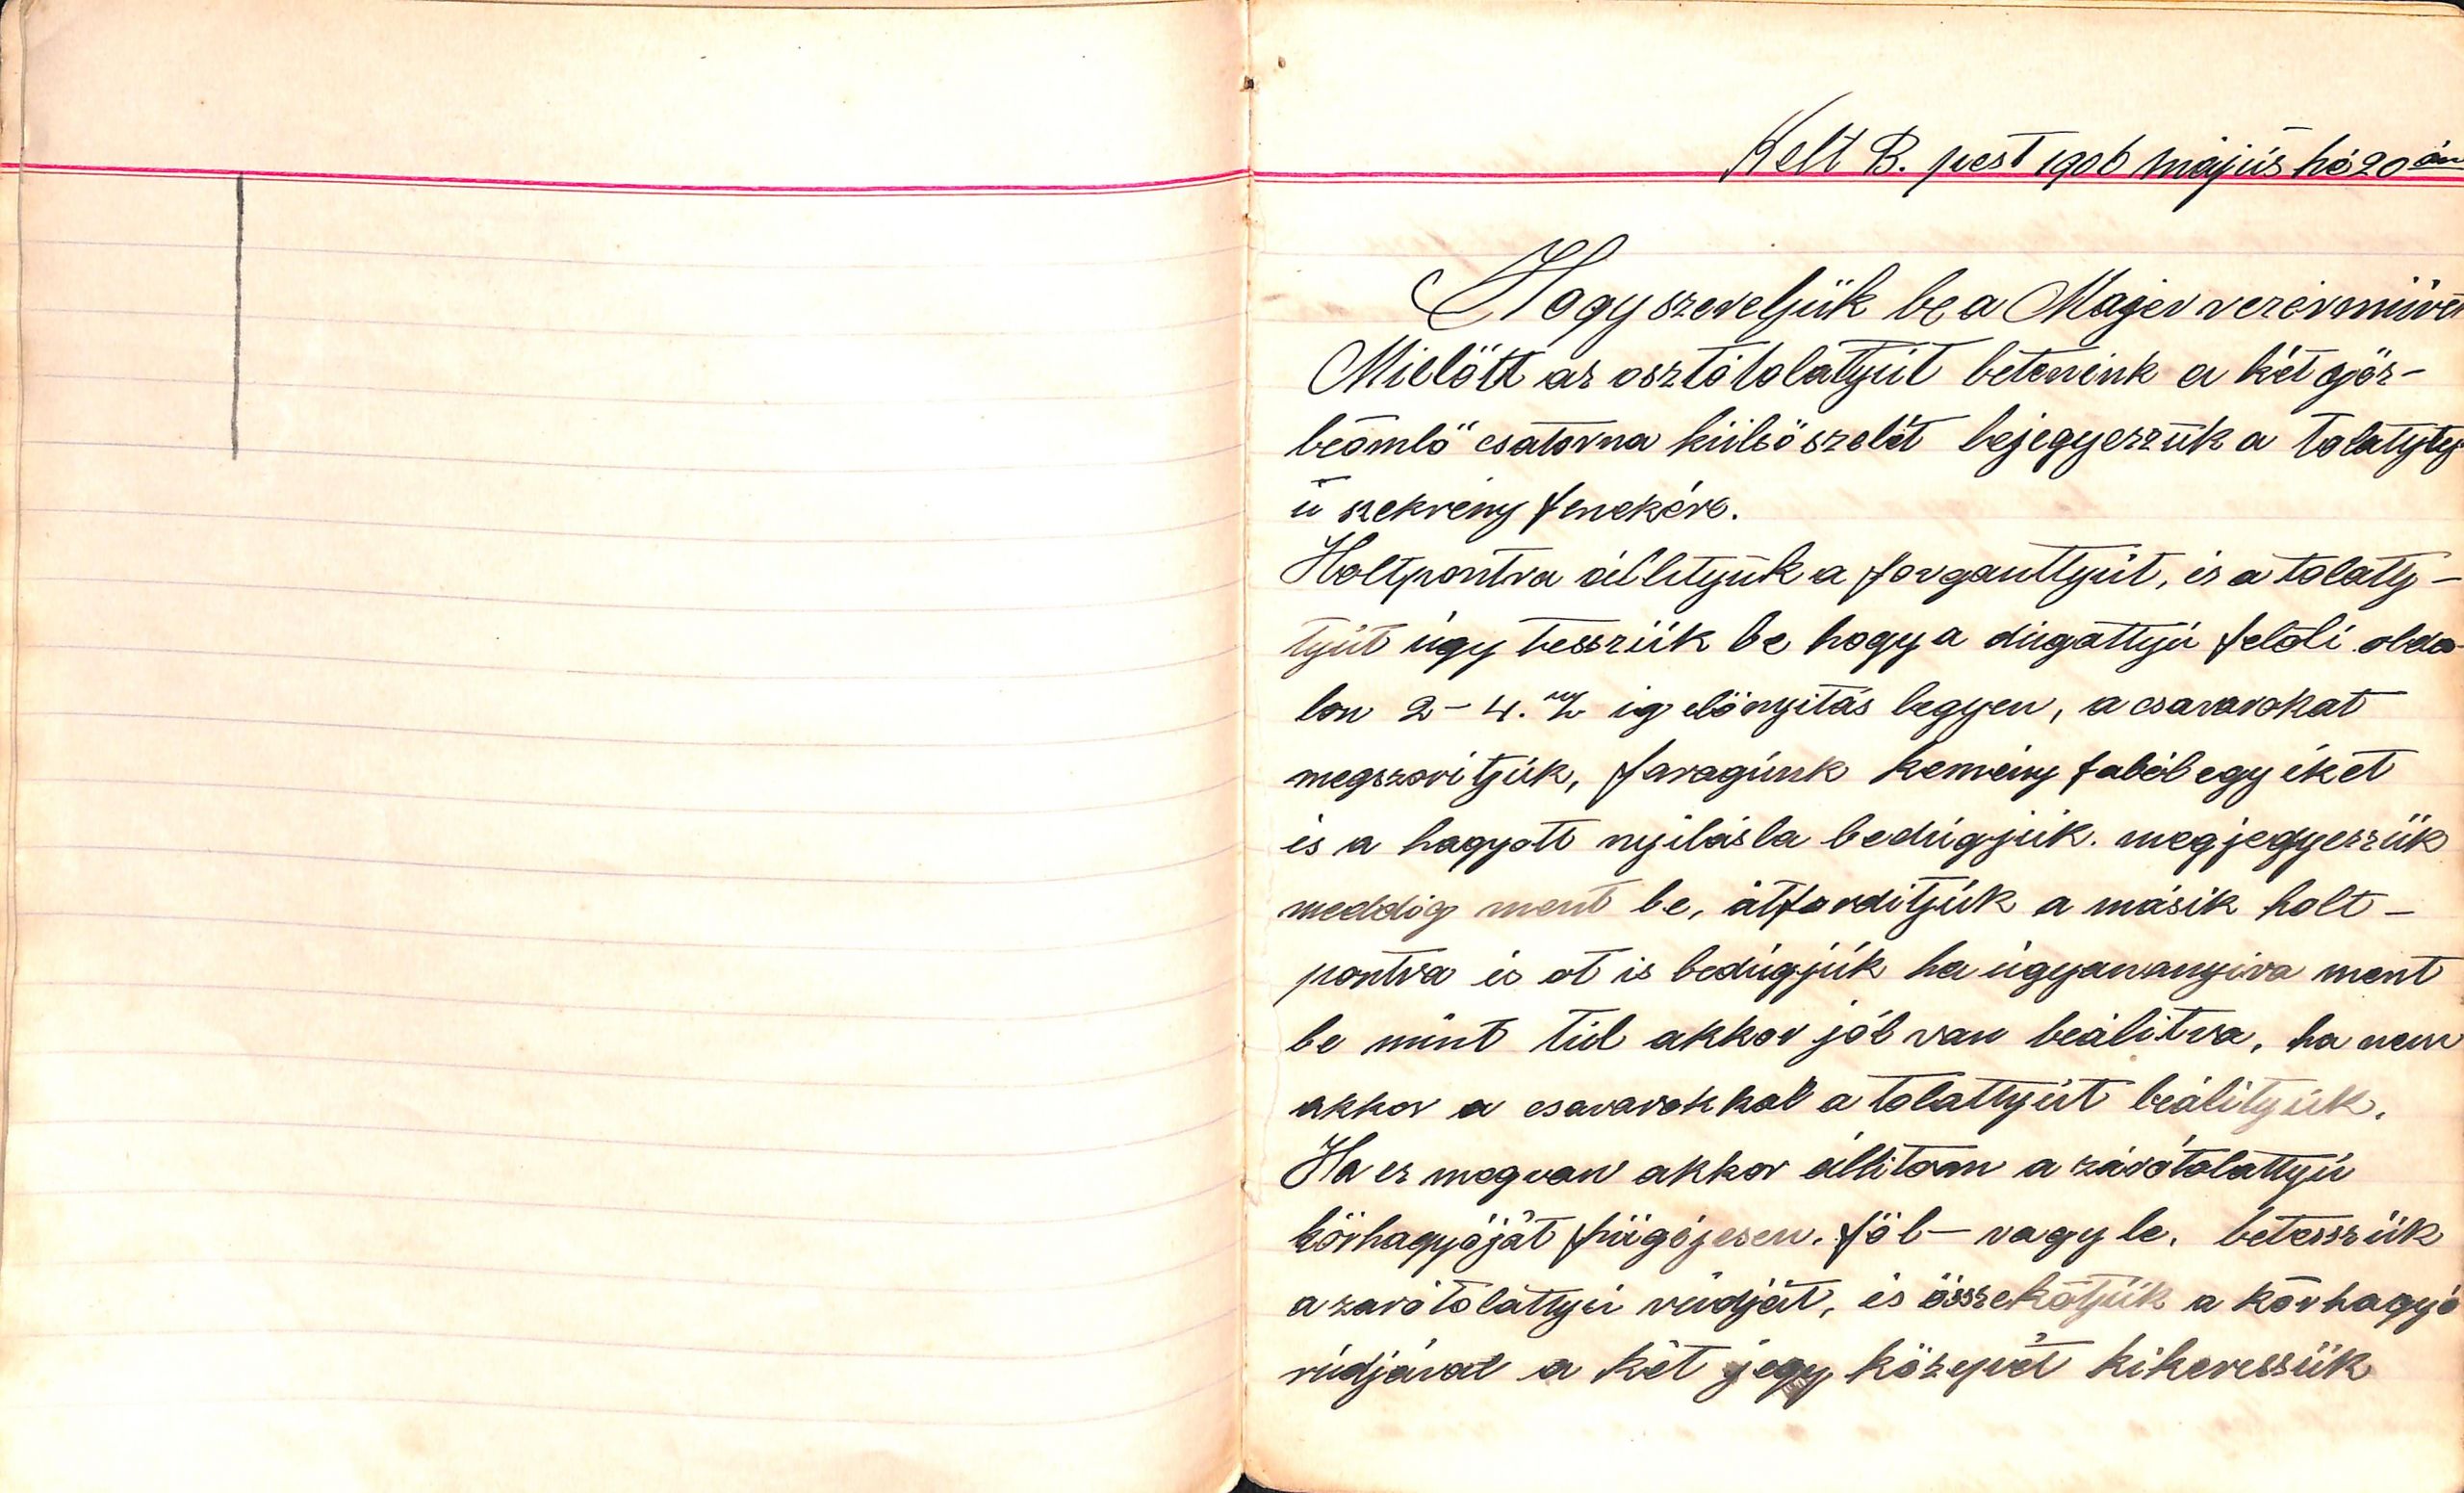 Kelt B. pest 1906 május hó 20 án
Hogy szereljük be a Majer vezérmüvet
Mielött az osztótolatyút betenénk a két göz-
beömlö csatorna külsö szelét bejegyezzük a tolatyty
ú szekrény fenekére.
Holtpontra állityuk a forganttyút, és a tolaty-
tyút úgy tesszük be hogy a dúgattyú felöli olda-
lon 2-4. m/m ig elönyitás legyen, a csavarokat
megszoritjúk, faragúnk kemény faból egy éket
és a hagyott nyilásba bedúgjúk. megjegyezzük
meddig ment be, átforditjúk a másik holt-
pontra és ot is bedúgjúk ha úgyananyira ment
be mint túl akkor jól van beálitva, ha nem
akkor a csavarokkal a tolattyút beálityúk.
Ha ez megvan akkor állitom a zárótolattyú
körhagyóját függöjesen. föl- vagy le. betesszük
a zarótolattyú rúdját, és összekötjük a körhagyó
rúdjával a két jegy közepét kikeressük